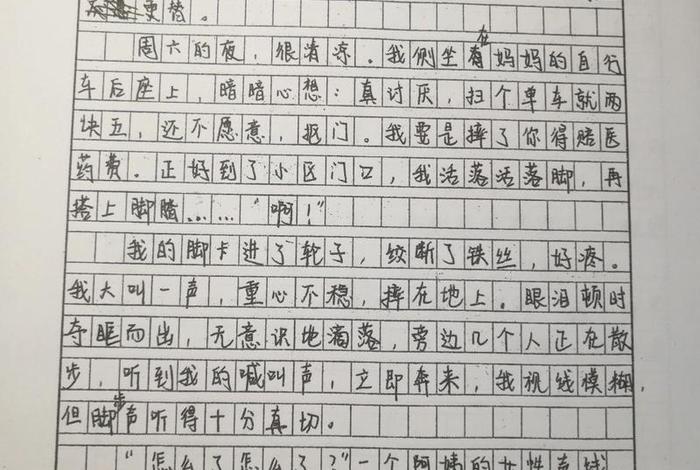 更替。
周六的夜，很清凉。我侧坐在妈妈的自行
车后座上，暗暗心想：真讨厌，扫个单车就两
块五，还不愿意，抠门。我要是摔了你得赔医
药费。正好到了小区门口，我活落活落脚，再
搭上脚踏……“啊！”
我的脚卡进了轮子，绞断了铁丝，好疼。
我大叫一声，重心不稳，摔在地上。眼泪顿时
夺眶而出，无意识地滴落，旁边几个人正在散
步，听到我的喊叫声，立即奔来，我视线模糊，
但脚步声听得十分真切。
“怎么了怎么了？”一个阿姨的女性声线